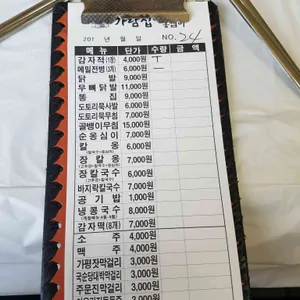 201 년 월 일 NO. 24
메 뉴 단가 수량 금 액
감자적(1장) 4,000원 ㅜ
메밀전병(3개) 6,000원 ㅡ
닭 발 9,000원
무뼈닭발 11,000원
똥 집 9,000원
도토리묵사발 6,000원
도토리묵무침 7,000원
골뱅이무침 15,000원
순옹심이 7,000원
칼 옹 6,000원
장칼옹 7,000원
장칼국수 6,000원
바지락칼국수 7,000원
공기밥 1,000원
냉콩국수 8,000원
감자떡(8개) 7,000원
소 주 4,000원
맥 주 4,000원
가평잣막걸리 3,000원
국순당대박막걸리 3,000원
주문진막걸리 3,000원
3,000원